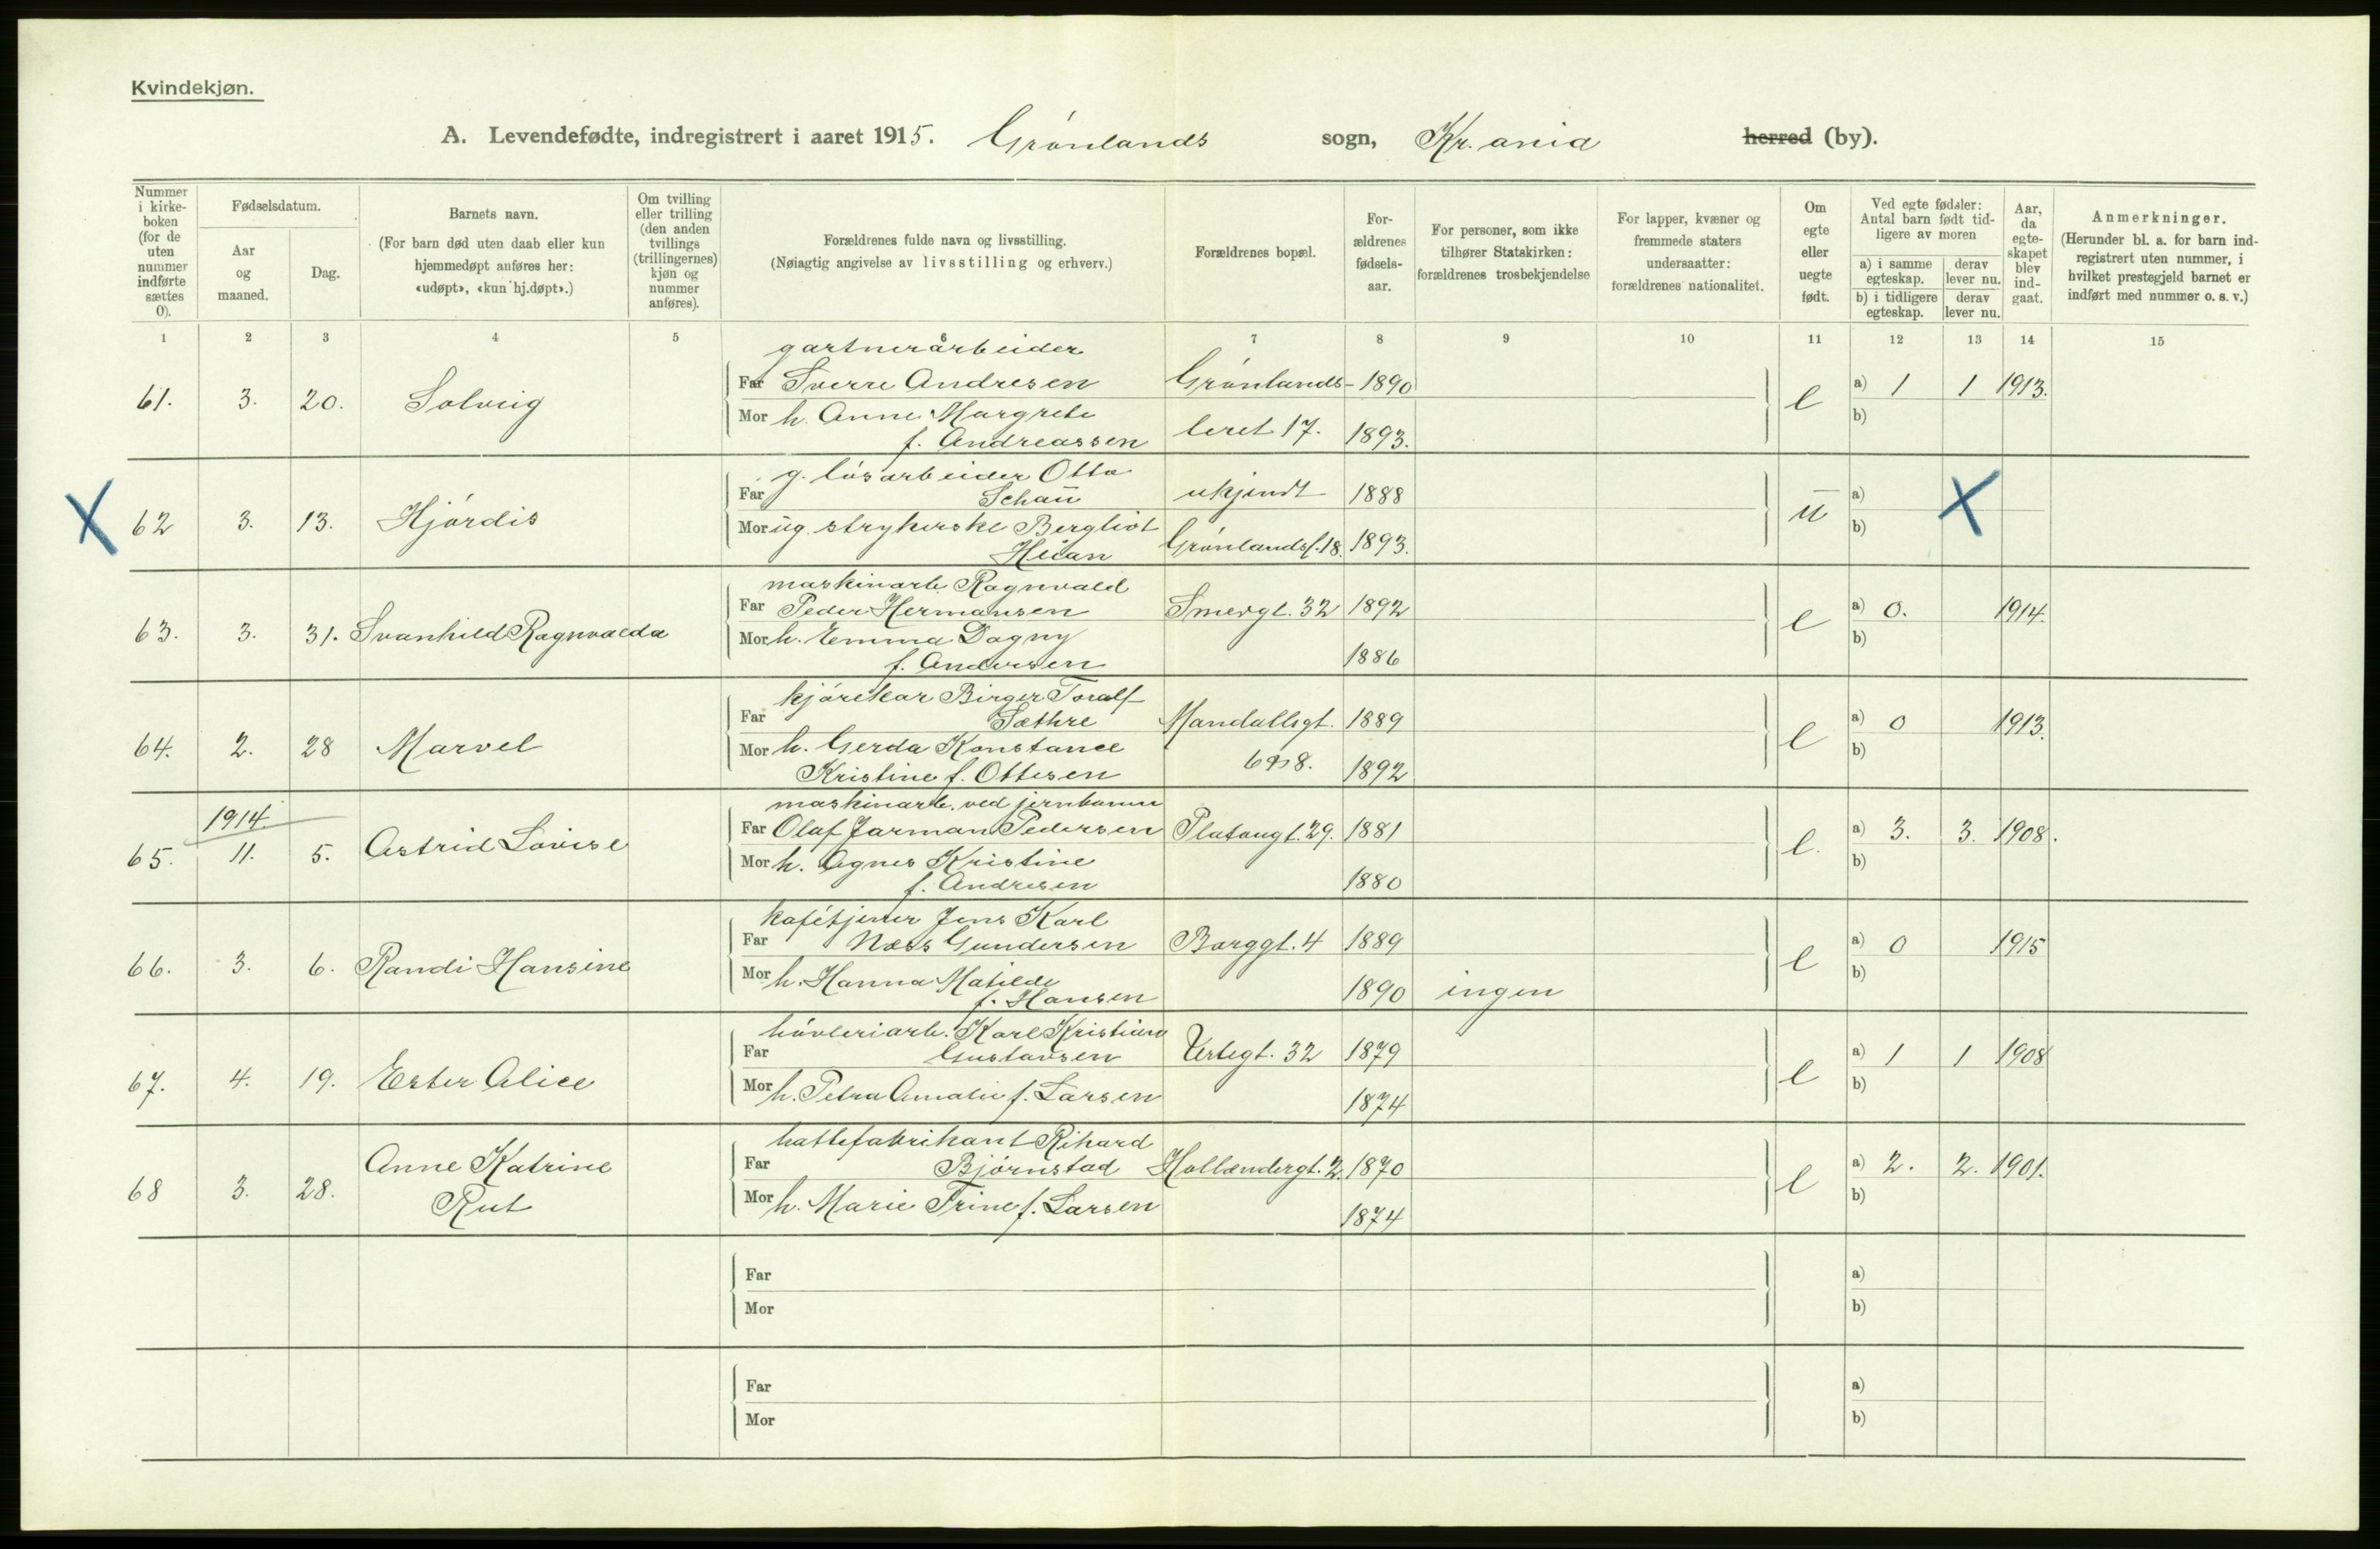 Kvindekjøn.
A. Levendefødte, indregistrert i aaret 1915. Grønlands sogn, Kr.ania herred (by).
Nummer i kirkeboken (for de uten nummer indførte sættes 0).
Fødselsdatum.
Aar og maaned.
Dag.
Barnets navn.
(For barn død uten daab eller kun hjemmedøpt anføres her: «udøpt», «kun hj.døpt».)
Om tvilling eller trilling (den anden tvillings (trillingernes) kjøn og nummer anføres).
Forældrenes fulde navn og livsstilling.
(Nøiagtig angivelse av livsstilling og erhverv.)
Forældrenes bopæl.
Forældrenes fødselsaar.
For personer, som ikke tilhører Statskirken: forældrenes trosbekjendelse
For lapper, kvæner og fremmede staters undersaatter: forældrenes nationalitet.
Om egte eller uegte født.
Ved egte fødsler: Antal barn født tidligere av moren
a) i samme egteskap. derav lever nu.
b) i tidligere egteskap. derav lever nu.
Aar, da egteskapet blev indgaat.
Anmerkninger.
(Herunder bl. a. for barn indregistrert uten nummer, i hvilket prestegjeld barnet er indført med nummer o. s. v.)
1 2 3 4 5 6 7 8 9 10 11 12 13 14 15
gartnerarbeider
61. 3. 20. Solveig Far Sverre Andresen Grønlands- 1890 e a) 1 1 1913.
Mor h. Anne Margrete leret 17. 1893. b)
f. Andreassen
g. løsarbeider Otto
X 62 3. 13. Hjørdis Far Schau ukjendt 1888 u a) X
Mor ug. strykerske Bergliot Grønlandsl. 18. 1893. b)
Heian
maskinarb. Ragnvald
63. 3. 31. Svanhild Ragnvalda Far Peder Hermansen Smedgt. 32 1892 e a) 0. 1914.
Mor h. Emma Dagny b)
f. Andersen 1886
kjørekar Birger Toralf
64. 2. 28 Marvel Far Sæthre Mandallsgt. 1889 e a) 0 1913.
Mor h. Gerda Konstance b)
Kristine f. Ottesen 6 8. 1892
1914 maskinarb. ved jernbanen
65. 11. 5. Astrid Lovise Far Olaf Jarman Pedersen Platougt. 29. 1881 e. a) 3. 3. 1908.
Mor h. Agnes Kristine b)
f. Andresen 1880
kafétjener Jens Karl
66. 3. 6. Randi Hansine Far Næss Gundersen Borggt. 4 1889 e a) 0 1915
Mor h. Hanna Matilde b)
f. Hansen 1890 ingen
høvleriarb. Karl Kristian
67. 4. 19. Ester Alice Far Gustavsen Urtegt. 32 1879 e a) 1 1 1908
Mor h. Petra Amalie f. Larsen 1874 b)
hattefabrikant Rikard
68 3. 28. Anne Katrine Rut Far Bjørnstad Hollændergt. 2. 1870 e a) 2. 2. 1901.
Mor h. Marie Trine f. Larsen 1874 b)
Far a)
Mor b)
Far a)
Mor b)